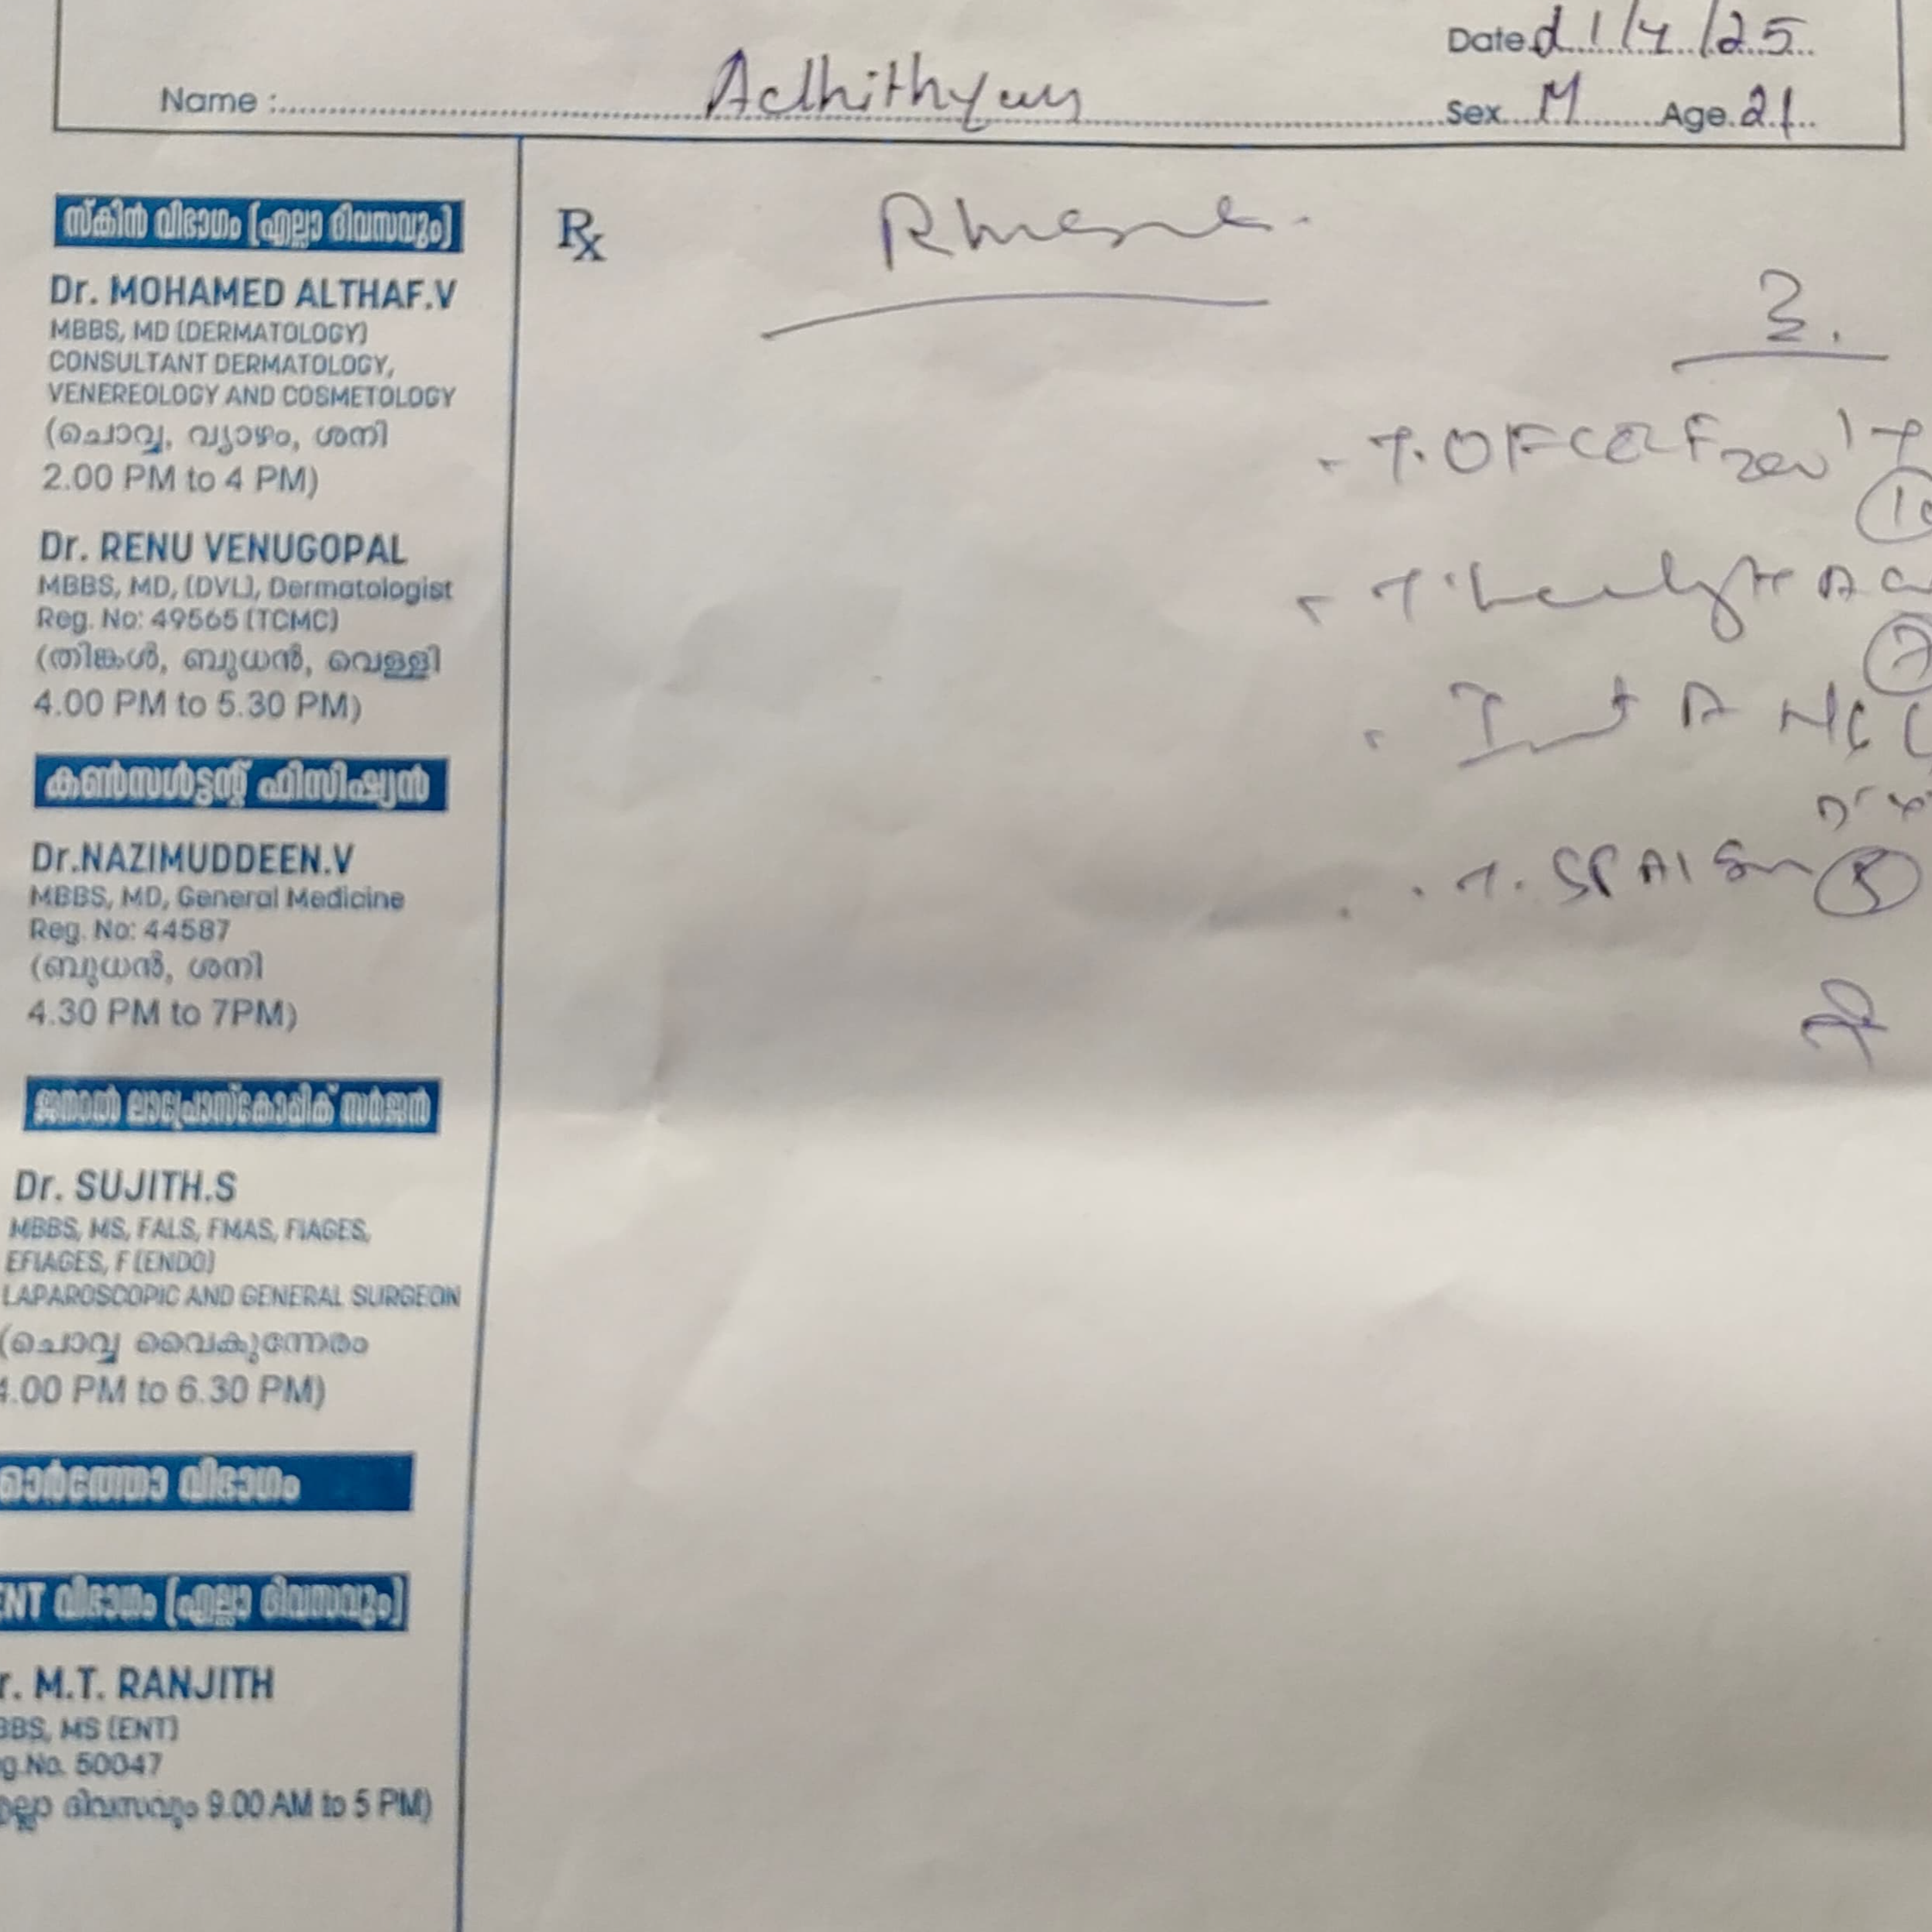 Date d1/4/25
Name : Adhithyan
Sex M Age 21
സ്കിൻ വിഭാഗം (എല്ലാ ദിവസവും)
Dr. MOHAMED ALTHAF.V
MBBS, MD (DERMATOLOGY)
CONSULTANT DERMATOLOGY,
VENEREOLOGY AND COSMETOLOGY
(ചൊവ്വ, വ്യാഴം, ശനി
2.00 PM to 4 PM)
Dr. RENU VENUGOPAL
MBBS, MD, (DVL), Dermatologist
Reg. No: 49565 (TCMC)
(തിങ്കൾ, ബുധൻ, വെള്ളി
4.00 PM to 5.30 PM)
കൺസൾട്ടന്റ് ഫിസിഷ്യൻ
Dr.NAZIMUDDEEN.V
MBBS, MD, General Medicine
Reg. No: 44587
(ബുധൻ, ശനി
4.30 PM to 7PM)
ജനറൽ ലാപ്രോസ്കോപ്പിക് സർജൻ
Dr. SUJITH.S
MBBS, MS, FALS, FMAS, FIAGES,
EFIAGES, F (ENDO)
LAPAROSCOPIC AND GENERAL SURGEON
(ചൊവ്വ വൈകുന്നേരം
4.00 PM to 6.30 PM)
ഓർത്തോ വിഭാഗം
ENT വിഭാഗം (എല്ലാ ദിവസവും)
r. M.T. RANJITH
BBS, MS (ENT)
g.No. 50047
എല്ലാ ദിവസവും 9.00 AM to 5 PM)
Rx
3.
T. OFCEF 200 1
T.
A
T. 5